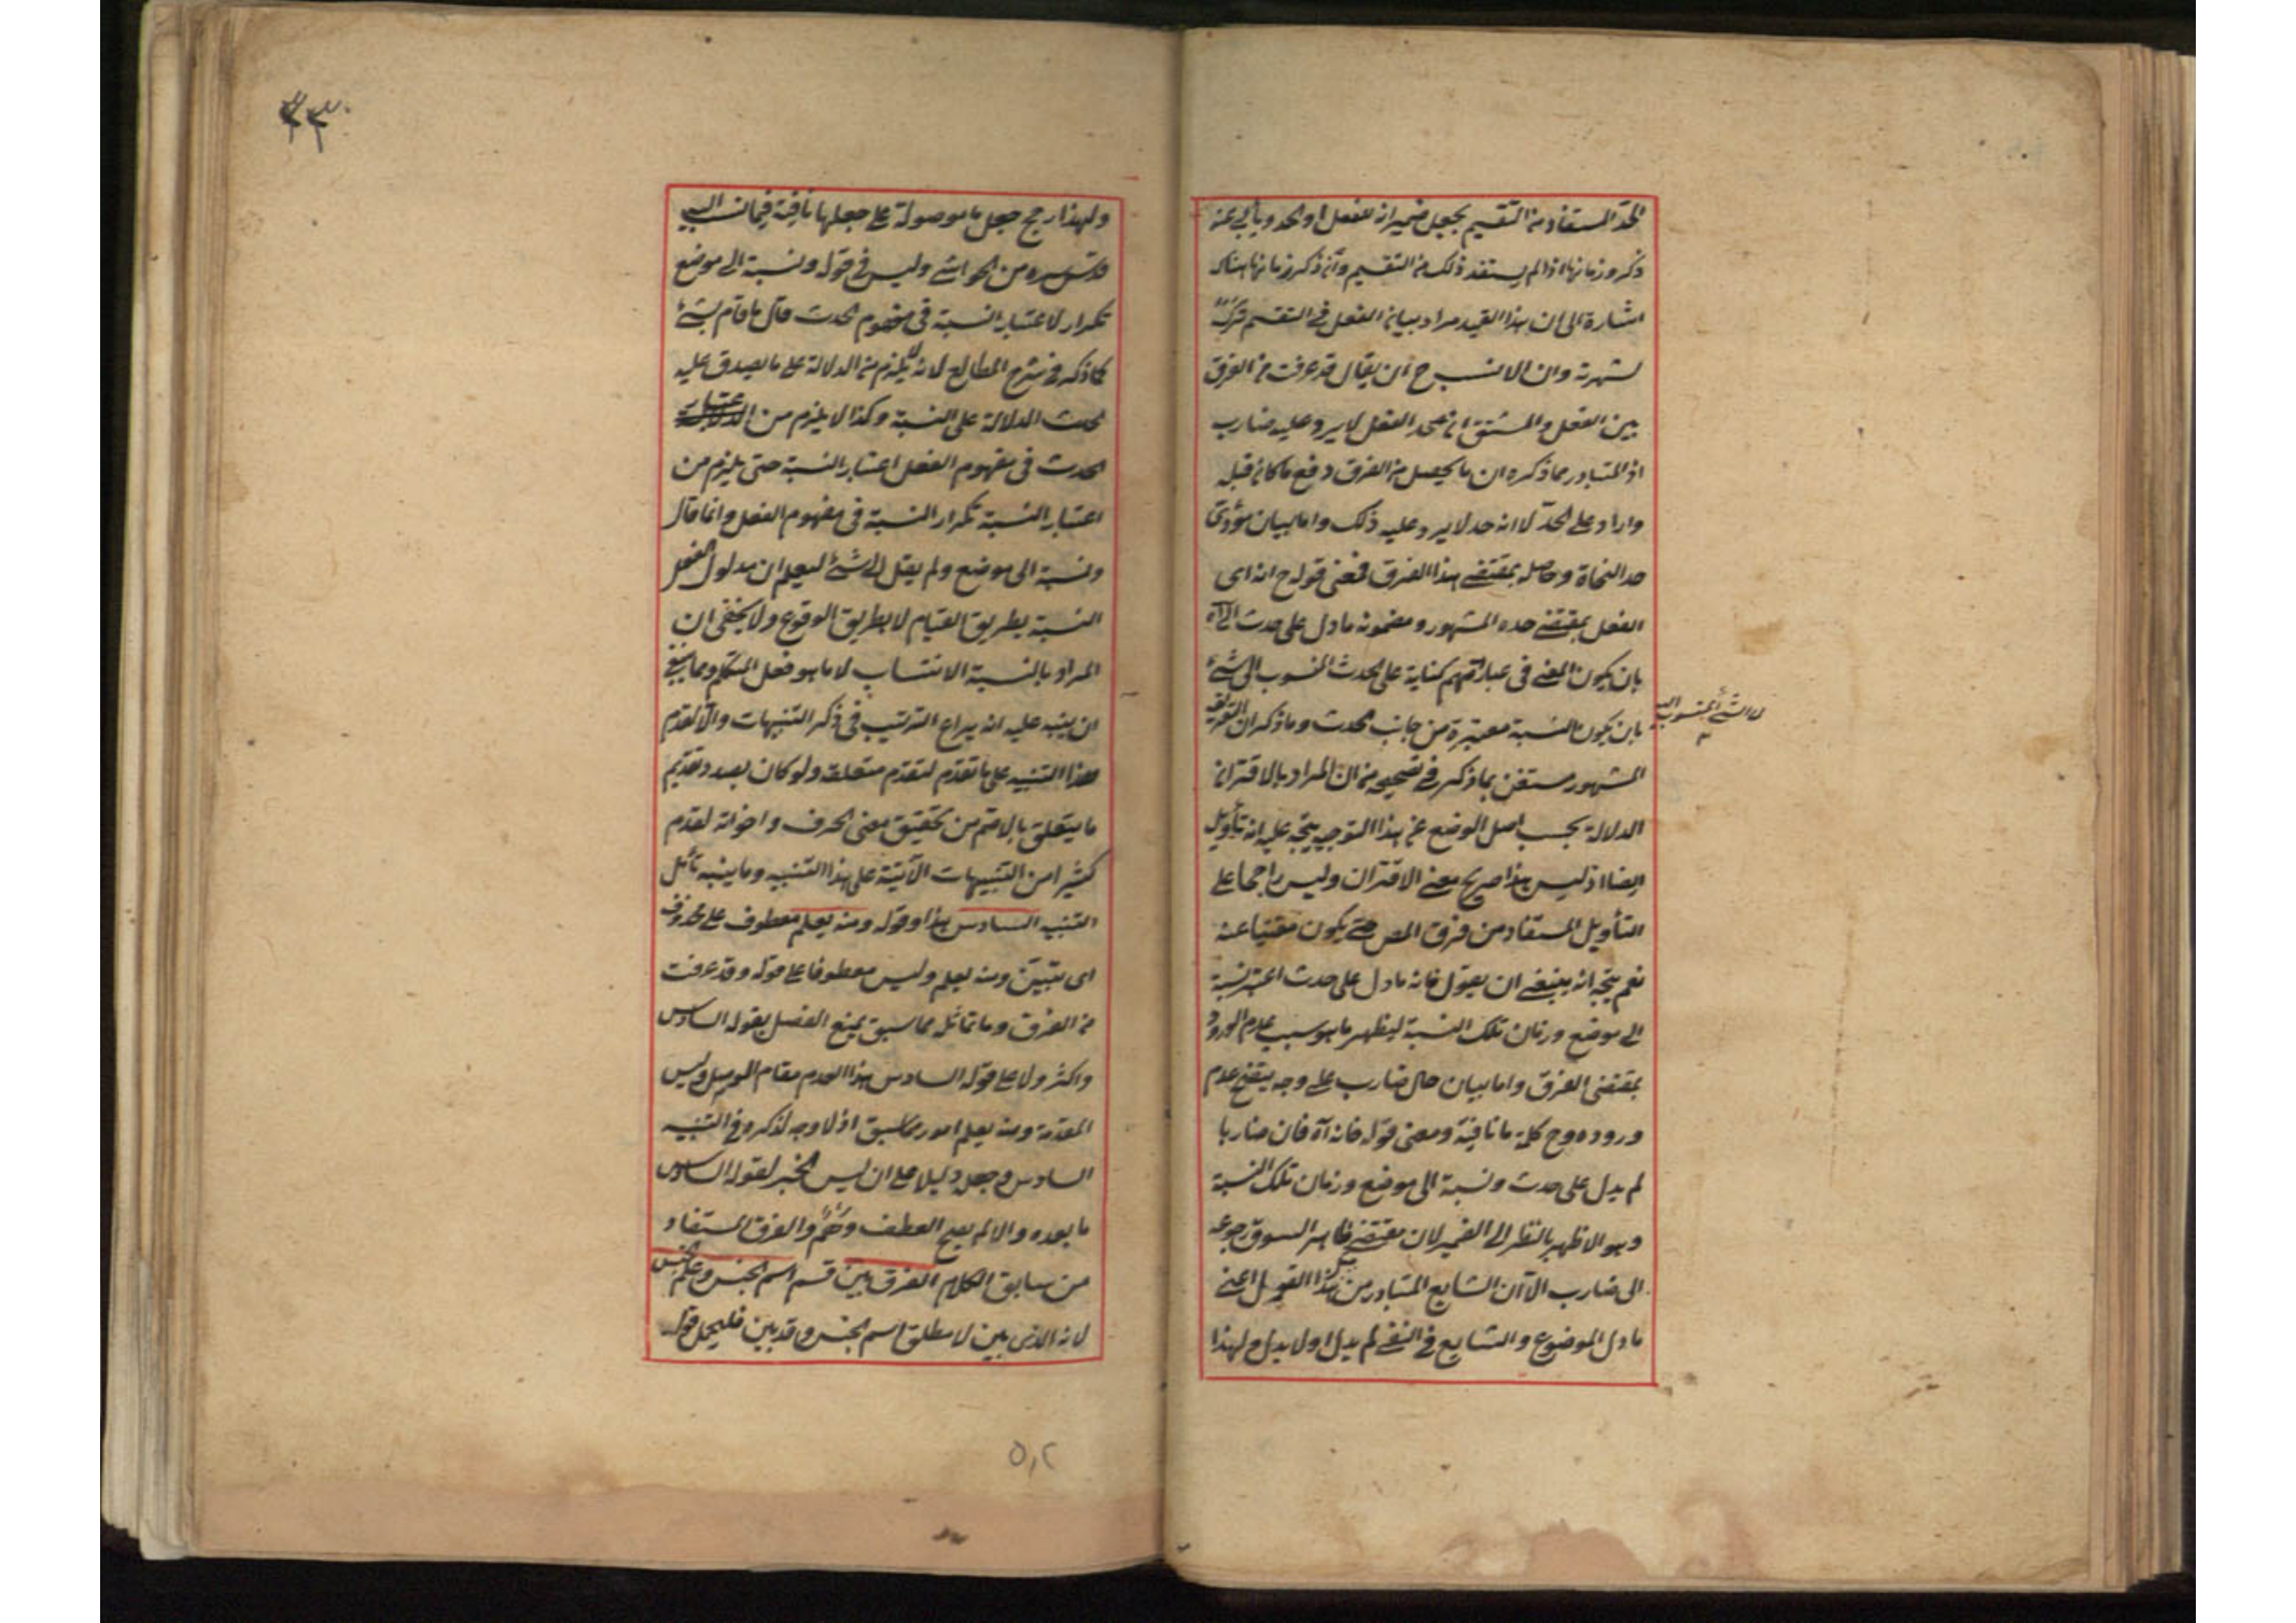 الحد المستفاد من التقسيم بجعل ضمير انه للفعل او الحد ويأبى عنه
ذكر وزمانها اذ لم يستفد ذلك من التقسيم وأن ذكر زمانها هناك
اشارة الى ان هذا القيد مراد ببيان الفعل في التقسيم ترك
لشهرته وان الانسب ح ان يقال قد عرفت من الفرق
بين الفعل والمشتق ان حد الفعل لا يرد عليه ضارب
اذ المتبادر مما ذكره ان ما يحصل من الفرق دفع ما كان قبله
واراد على الحد لا انه حد لا يرد عليه ذلك واما بيان مؤدى
حد النحاة وحاصله بمقتضى هذا الفرق فمعنى قوله ح انه اى
الفعل بمقتضى حده المشهور ومضمونه ما دل على حدث الى آه
بان يكون المعنى في عبارتهم كناية على الحدث المنسوب الى شئ
لا الشئ المنسوب اليه
بان يكون النسبة معتبرة من جانب الحدث وما ذكر ان التعريف
المشهور مستغن بما ذكر في تصحيحه من ان المراد بالاقتران
الدلالة بحسب اصل الوضع عن هذا التوجيه يتجه عليه انه تأويل
ايضا اذ ليس هذا صريح معنى الاقتران وليس راجحا على
التأويل المستفاد من فرق المص حتى يكون مغنيا عنه
نعم يتجه انه ينبغى ان يقول فانه ما دل على حدث اعتبر نسبة
الى موضع وزمان تلك النسبة ليظهر ما هو سبب عدم الورود
بمقتضى الفرق واما بيان حال ضارب على وجه يتضح عدم
وروده وح كلمة ما نافية ومعنى قوله فانه آه فان ضاربا
لم يدل على حدث ونسبة الى موضع وزمان تلك النسبة
وهو الاظهر بالنظر الى الضمير لان مقتضى ظاهر السوق رجوعه
الى ضارب الا ان الشايع المتبادر من هذا القول اعنى
ما دل الموضوع والشايع في النفى لم يدل او لا يدل ولهذا
ولهذا رجح جعل ما موصولة على جعلها نافية فيما نسب اليه
قدس سره من الحواشى وليس في قوله ونسبة الى موضع
تكرار لاعتبار النسبة في مفهوم الحدث قال ما قام بشئ
كما ذكره في شرح المطالع لانه لا يلزم من الدلالة على ما يصدق عليه
الحدث الدلالة على النسبة وكذا لا يلزم من اعتبار
الحدث في مفهوم الفعل اعتبار النسبة حتى يلزم من
اعتبار النسبة تكرار النسبة في مفهوم الفعل وانما قال
ونسبة الى موضع ولم يقل الى شئ ليعلم ان مدلول الفعل
النسبة بطريق القيام لا بطريق الوقوع ولا يخفى ان
المراد بالنسبة الانتساب لا ما هو فعل المتكلم ومما ينبغى
ان ينبه عليه انه يراع الترتيب في ذكر التنبيهات والا لقدم
هذا التنبيه على ما تقدم لتقدم متعلقه ولو كان بصدد تقديم
ما يتعلق بالاهم من تحقيق معنى الحرف واخواته لقدم
كثيرا من التنبيهات الآتية على هذا التنبيه وما ينبه تأمل
التنبيه السادس هذا وقوله ومنه يعلم معطوف على محذوف
اى تبين ومنه يعلم وليس معطوفا على قوله وقد عرفت
من الفرق وما تماثله مما سبق يمنع الفصل بقوله السادس
واكثر ولا على قوله السادس هذا لعدم مقام الوصل وليس
المقدمة ومنه يعلم امور مما سبق اذ لا وجه لذكره في التنبيه
السادس وجعل دليلا على ان ليس الخبر لقوله السادس
ما بعده والا لم يصح العطف والفرق المستفاد
من سابق الكلام الفرق بين قسم اسم الجنس وعلم الجنس
لانه الذى بين لا مطلق اسم الجنس وقد بين فليحمل قوله
٥٠٢